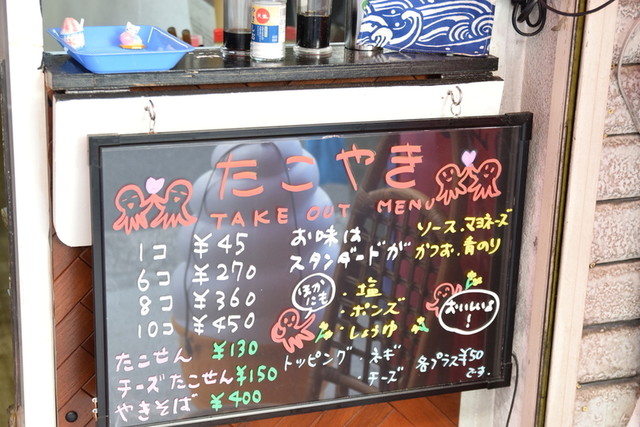 たこやき
TAKE OUT MENU
1コ ¥45
6コ ¥270
8コ ¥360
10コ ¥450
お味は
スタンダードが
ソース.マヨネーズ
かつお.青のり
ほかにも
・塩
・ポンズ
・しょうゆ
おいしいよ!
たこせん ¥130
チーズたこせん ¥150
やきそば ¥400
トッピング・ネギ
チーズ
各プラス¥50
です.